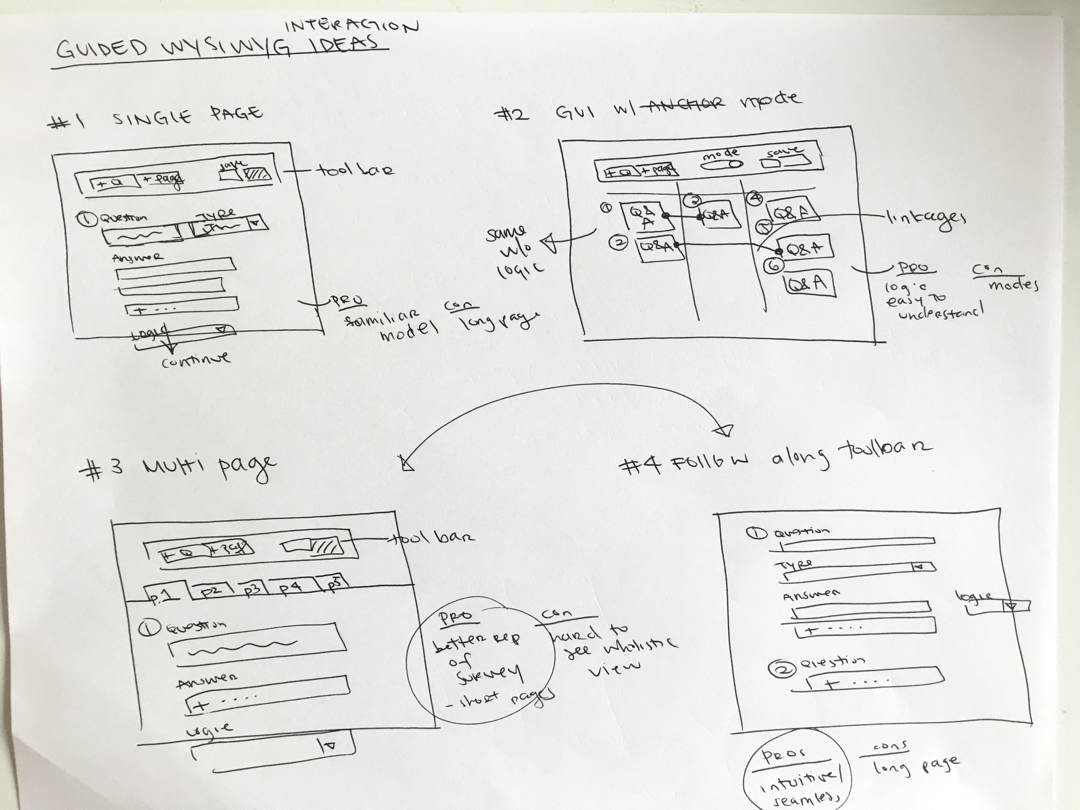 INTERACTION
GUIDED WYSIWYG IDEAS
#1 SINGLE PAGE
+Q +page save
toolbar
1 Question TYPE
Answer
+ ....
Logic
continue
PRO
familiar
model
con
long page
#2 GUI w/ ANCHOR mode
+Q +page mode save
1 Q&A
2 Q&A
3 Q&A
4 Q&A
5 Q&A
6 Q&A
linkages
same
w/o
logic
PRO
logic
easy to
understand
con
modes
#3 Multi page
+Q +pg
toolbar
p.1 p2 p3 p4 p5
1 Question
Answer
+ ....
Logic
PRO
better rep
of
survey
- short pages
con
hard to
see wholistic
view
#4 Follow along toolbar
1 Question
TYPE
Answer
+ ....
logic
2 Question
+ ....
PROS
intuitive/
seamless
cons
long page